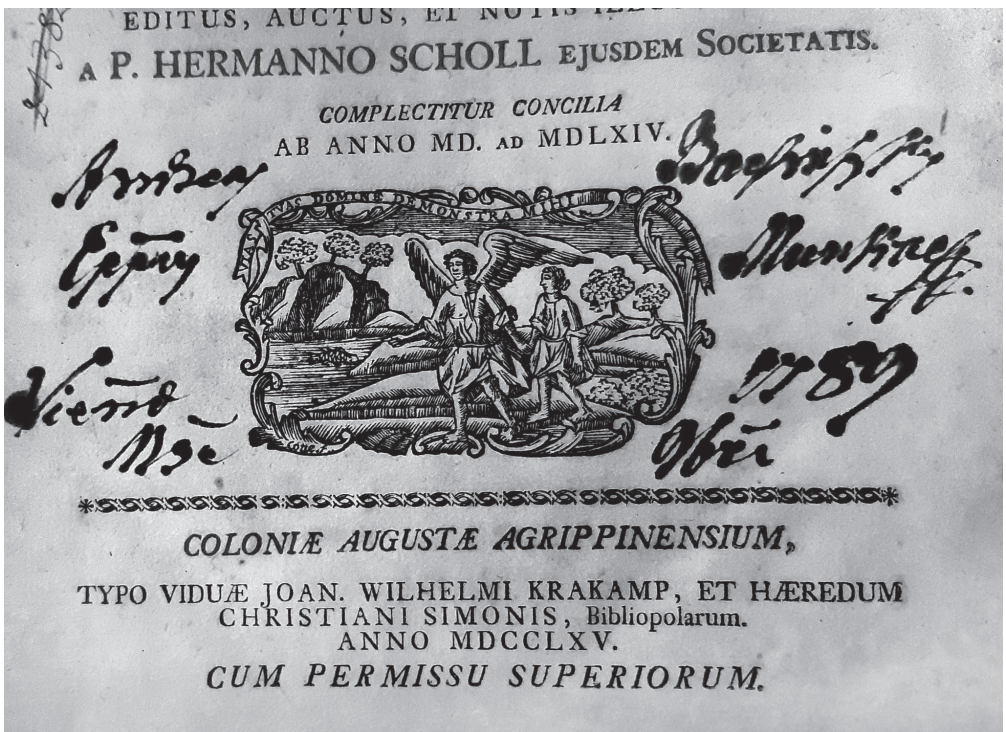 EDITUS, AUCTUS, ET NOTIS
A P. HERMANNO SCHOLL EJUSDEM SOCIETATIS.
COMPLECTITUR CONCILIA
AB ANNO MD. AD MDLXIV.
Andreas Bacsinszky
Eppūs Munkacs
TUAS DOMINE DEMONSTRA MIHI
Viennæ 1789
9bri
COLONIÆ AUGUSTÆ AGRIPPINENSIUM,
TYPO VIDUÆ JOAN. WILHELMI KRAKAMP, ET HÆREDUM
CHRISTIANI SIMONIS, Bibliopolarum.
ANNO MDCCLXV.
CUM PERMISSU SUPERIORUM.